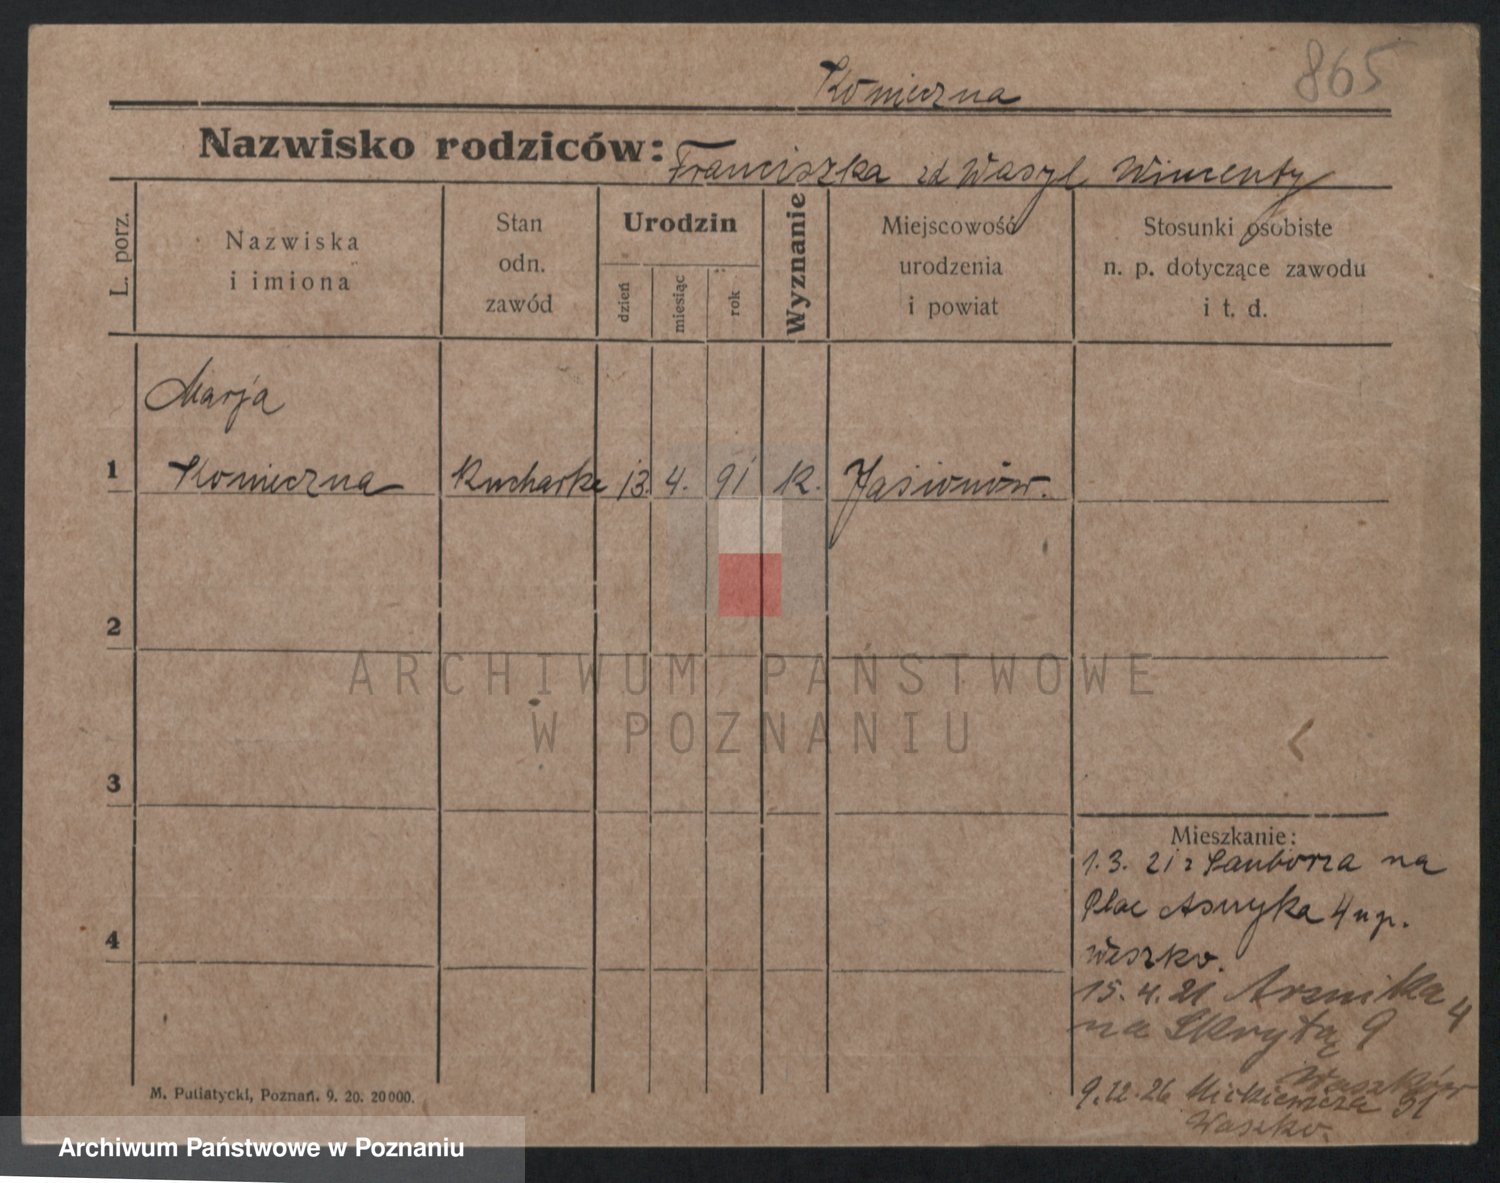 865
Konieczna
Nazwisko rodziców: Franciszka zd Wasyl Wincenty
L. porz.
Nazwiska
i imiona
Stan
odn.
zawód
Urodzin
dzień
miesiąc
rok
Wyznanie
Miejscowość
urodzenia
i powiat
Stosunki osobiste
n. p. dotyczące zawodu
i t. d.
Marja
1 Konieczna Kucharka 13. 4. 91 K. Jasionów.
2
3
4
ARCHIWUM PAŃSTWOWE
W POZNANIU
Mieszkanie:
1.3. 21 z na
Plac Asnyka 4 u p.
15. 4. 21 Asnika 4
na Skrytą 9
9.12.26 Mickiewicza 31
M. Putiatycki, Poznań. 9. 20. 20000.
Archiwum Państwowe w Poznaniu